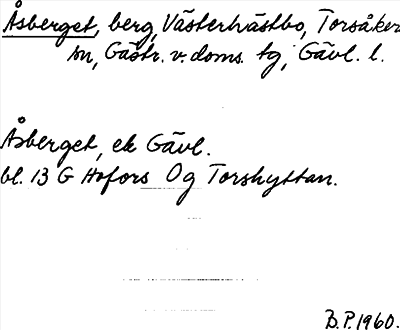 Åsberget, berg, Västerhästbo, Torsåker
sn, Gästr. v. doms. tg, Gävl. l.
Åsberget, ek Gävl.
bl. 13 G Hofors Og Torshyttan.
B.P. 1960.